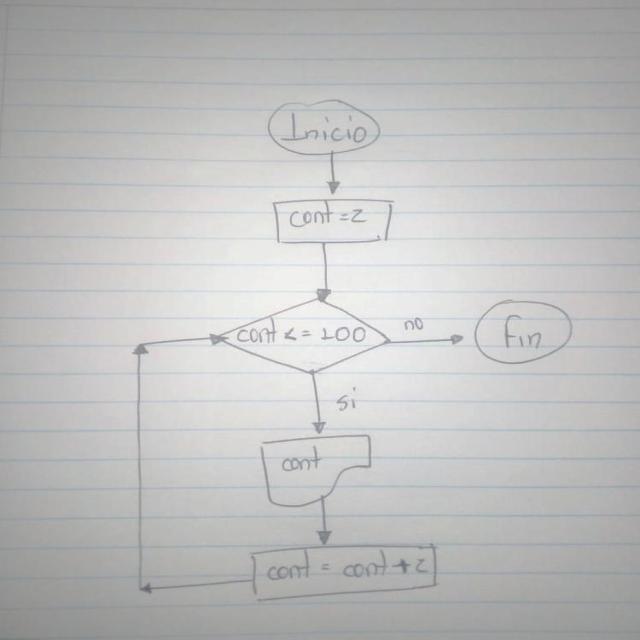 Inicio
cont = 2
cont <= 100
no
Fin
si
cont
cont = cont + 2